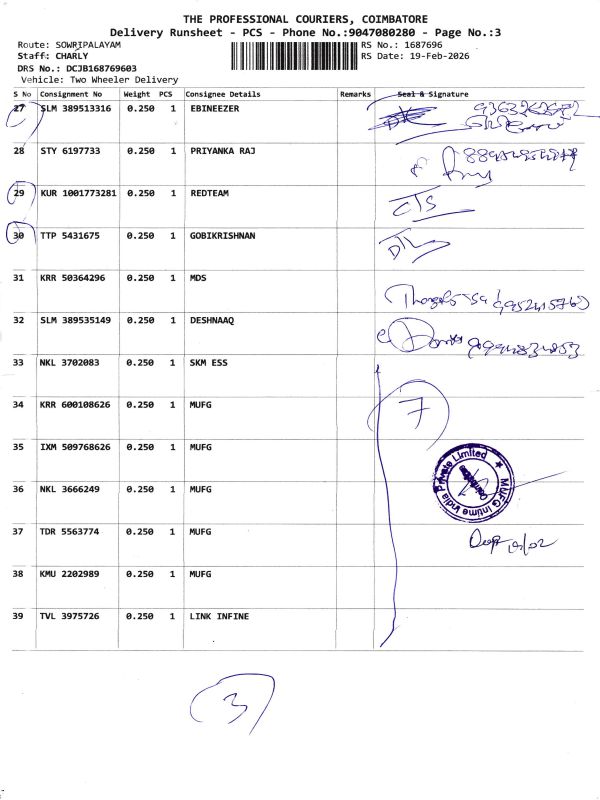 THE PROFESSIONAL COURIERS, COIMBATORE
Delivery Runsheet - PCS - Phone No.:9047080280 - Page No.:3
Route: SOWRIPALAYAM RS No.: 1687696
Staff: CHARLY RS Date: 19-Feb-2026
DRS No.: DCJB168769603
Vehicle: Two Wheeler Delivery
S No Consignment No Weight PCS Consignee Details Remarks Seal & Signature
27 SLM 389513316 0.250 1 EBINEEZER
28 STY 6197733 0.250 1 PRIYANKA RAJ
29 KUR 1001773281 0.250 1 REDTEAM CTS
30 TTP 5431675 0.250 1 GOBIKRISHNAN
31 KRR 50364296 0.250 1 MDS
32 SLM 389535149 0.250 1 DESHNAAQ
33 NKL 3702083 0.250 1 SKM ESS
34 KRR 600108626 0.250 1 MUFG 7
35 IXM 509768626 0.250 1 MUFG
MUFG Intime India Private Limited
36 NKL 3666249 0.250 1 MUFG
37 TDR 5563774 0.250 1 MUFG
38 KMU 2202989 0.250 1 MUFG
39 TVL 3975726 0.250 1 LINK INFINE
3